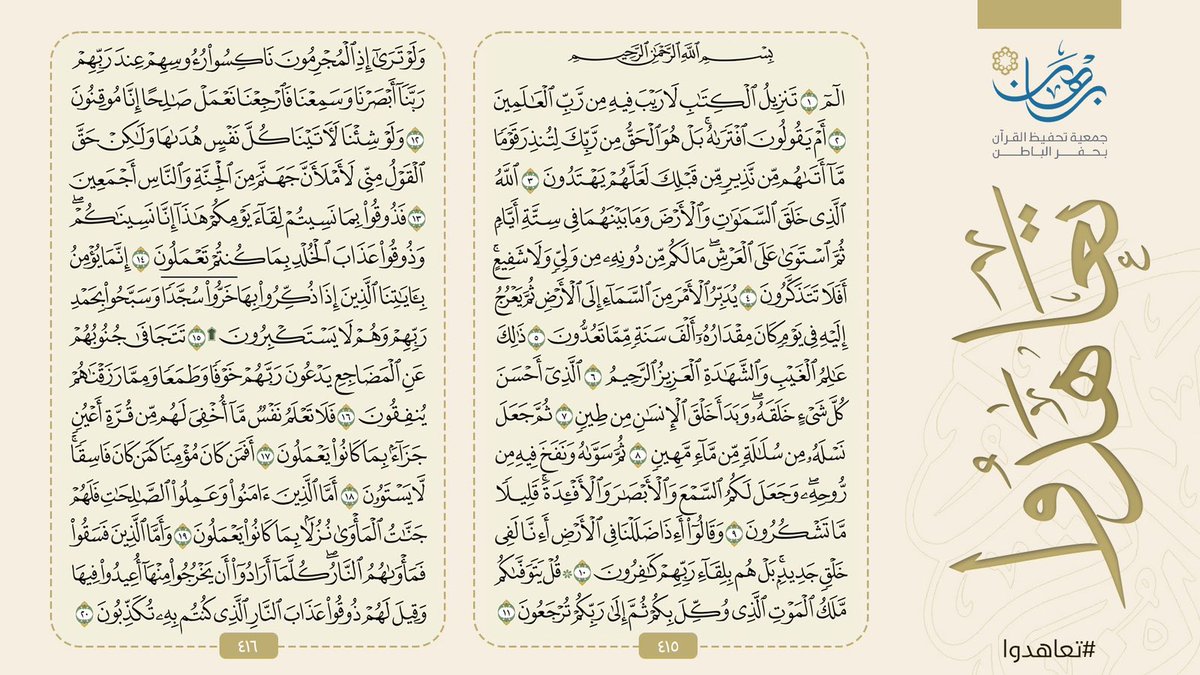 بِسْمِ ٱللَّهِ ٱلرَّحْمَٰنِ ٱلرَّحِيمِ
الٓمٓ ١ تَنزِيلُ ٱلْكِتَٰبِ لَا رَيْبَ فِيهِ مِن رَّبِّ ٱلْعَٰلَمِينَ
٢ أَمْ يَقُولُونَ ٱفْتَرَىٰهُ ۚ بَلْ هُوَ ٱلْحَقُّ مِن رَّبِّكَ لِتُنذِرَ قَوْمًا
مَّآ أَتَىٰهُم مِّن نَّذِيرٍ مِّن قَبْلِكَ لَعَلَّهُمْ يَهْتَدُونَ ٣ ٱللَّهُ
ٱلَّذِى خَلَقَ ٱلسَّمَٰوَٰتِ وَٱلْأَرْضَ وَمَا بَيْنَهُمَا فِى سِتَّةِ أَيَّامٍ
ثُمَّ ٱسْتَوَىٰ عَلَى ٱلْعَرْشِ ۖ مَا لَكُم مِّن دُونِهِۦ مِن وَلِىٍّ وَلَا شَفِيعٍ ۚ
أَفَلَا تَتَذَكَّرُونَ ٤ يُدَبِّرُ ٱلْأَمْرَ مِنَ ٱلسَّمَآءِ إِلَى ٱلْأَرْضِ ثُمَّ يَعْرُجُ
إِلَيْهِ فِى يَوْمٍ كَانَ مِقْدَارُهُۥٓ أَلْفَ سَنَةٍ مِّمَّا تَعُدُّونَ ٥ ذَٰلِكَ
عَٰلِمُ ٱلْغَيْبِ وَٱلشَّهَٰدَةِ ٱلْعَزِيزُ ٱلرَّحِيمُ ٦ ٱلَّذِىٓ أَحْسَنَ
كُلَّ شَىْءٍ خَلَقَهُۥ ۖ وَبَدَأَ خَلْقَ ٱلْإِنسَٰنِ مِن طِينٍ ٧ ثُمَّ جَعَلَ
نَسْلَهُۥ مِن سُلَٰلَةٍ مِّن مَّآءٍ مَّهِينٍ ٨ ثُمَّ سَوَّىٰهُ وَنَفَخَ فِيهِ مِن
رُّوحِهِۦ ۖ وَجَعَلَ لَكُمُ ٱلسَّمْعَ وَٱلْأَبْصَٰرَ وَٱلْأَفْـِٔدَةَ ۚ قَلِيلًا
مَّا تَشْكُرُونَ ٩ وَقَالُوٓا۟ أَءِذَا ضَلَلْنَا فِى ٱلْأَرْضِ أَءِنَّا لَفِى
خَلْقٍ جَدِيدٍۭ ۚ بَلْ هُم بِلِقَآءِ رَبِّهِمْ كَٰفِرُونَ ١٠ ۞ قُلْ يَتَوَفَّىٰكُم
مَّلَكُ ٱلْمَوْتِ ٱلَّذِى وُكِّلَ بِكُمْ ثُمَّ إِلَىٰ رَبِّكُمْ تُرْجَعُونَ ١١
٤١٥
وَلَوْ تَرَىٰٓ إِذِ ٱلْمُجْرِمُونَ نَاكِسُوا۟ رُءُوسِهِمْ عِندَ رَبِّهِمْ
رَبَّنَآ أَبْصَرْنَا وَسَمِعْنَا فَٱرْجِعْنَا نَعْمَلْ صَٰلِحًا إِنَّا مُوقِنُونَ
١٢ وَلَوْ شِئْنَا لَءَاتَيْنَا كُلَّ نَفْسٍ هُدَىٰهَا وَلَٰكِنْ حَقَّ
ٱلْقَوْلُ مِنِّى لَأَمْلَأَنَّ جَهَنَّمَ مِنَ ٱلْجِنَّةِ وَٱلنَّاسِ أَجْمَعِينَ
١٣ فَذُوقُوا۟ بِمَا نَسِيتُمْ لِقَآءَ يَوْمِكُمْ هَٰذَآ إِنَّا نَسِينَٰكُمْ ۖ
وَذُوقُوا۟ عَذَابَ ٱلْخُلْدِ بِمَا كُنتُمْ تَعْمَلُونَ ١٤ إِنَّمَا يُؤْمِنُ
بِـَٔايَٰتِنَا ٱلَّذِينَ إِذَا ذُكِّرُوا۟ بِهَا خَرُّوا۟ سُجَّدًا وَسَبَّحُوا۟ بِحَمْدِ
رَبِّهِمْ وَهُمْ لَا يَسْتَكْبِرُونَ ۩ ١٥ تَتَجَافَىٰ جُنُوبُهُمْ
عَنِ ٱلْمَضَاجِعِ يَدْعُونَ رَبَّهُمْ خَوْفًا وَطَمَعًا وَمِمَّا رَزَقْنَٰهُمْ
يُنفِقُونَ ١٦ فَلَا تَعْلَمُ نَفْسٌ مَّآ أُخْفِىَ لَهُم مِّن قُرَّةِ أَعْيُنٍ
جَزَآءًۢ بِمَا كَانُوا۟ يَعْمَلُونَ ١٧ أَفَمَن كَانَ مُؤْمِنًا كَمَن كَانَ فَاسِقًا ۚ
لَّا يَسْتَوُۥنَ ١٨ أَمَّا ٱلَّذِينَ ءَامَنُوا۟ وَعَمِلُوا۟ ٱلصَّٰلِحَٰتِ فَلَهُمْ
جَنَّٰتُ ٱلْمَأْوَىٰ نُزُلًۢا بِمَا كَانُوا۟ يَعْمَلُونَ ١٩ وَأَمَّا ٱلَّذِينَ فَسَقُوا۟
فَمَأْوَىٰهُمُ ٱلنَّارُ ۖ كُلَّمَآ أَرَادُوٓا۟ أَن يَخْرُجُوا۟ مِنْهَآ أُعِيدُوا۟ فِيهَا
وَقِيلَ لَهُمْ ذُوقُوا۟ عَذَابَ ٱلنَّارِ ٱلَّذِى كُنتُم بِهِۦ تُكَذِّبُونَ ٢٠
٤١٦
برهان
جمعية تحفيظ القرآن
بحفر الباطن
تعاهدوا
#تعاهدوا